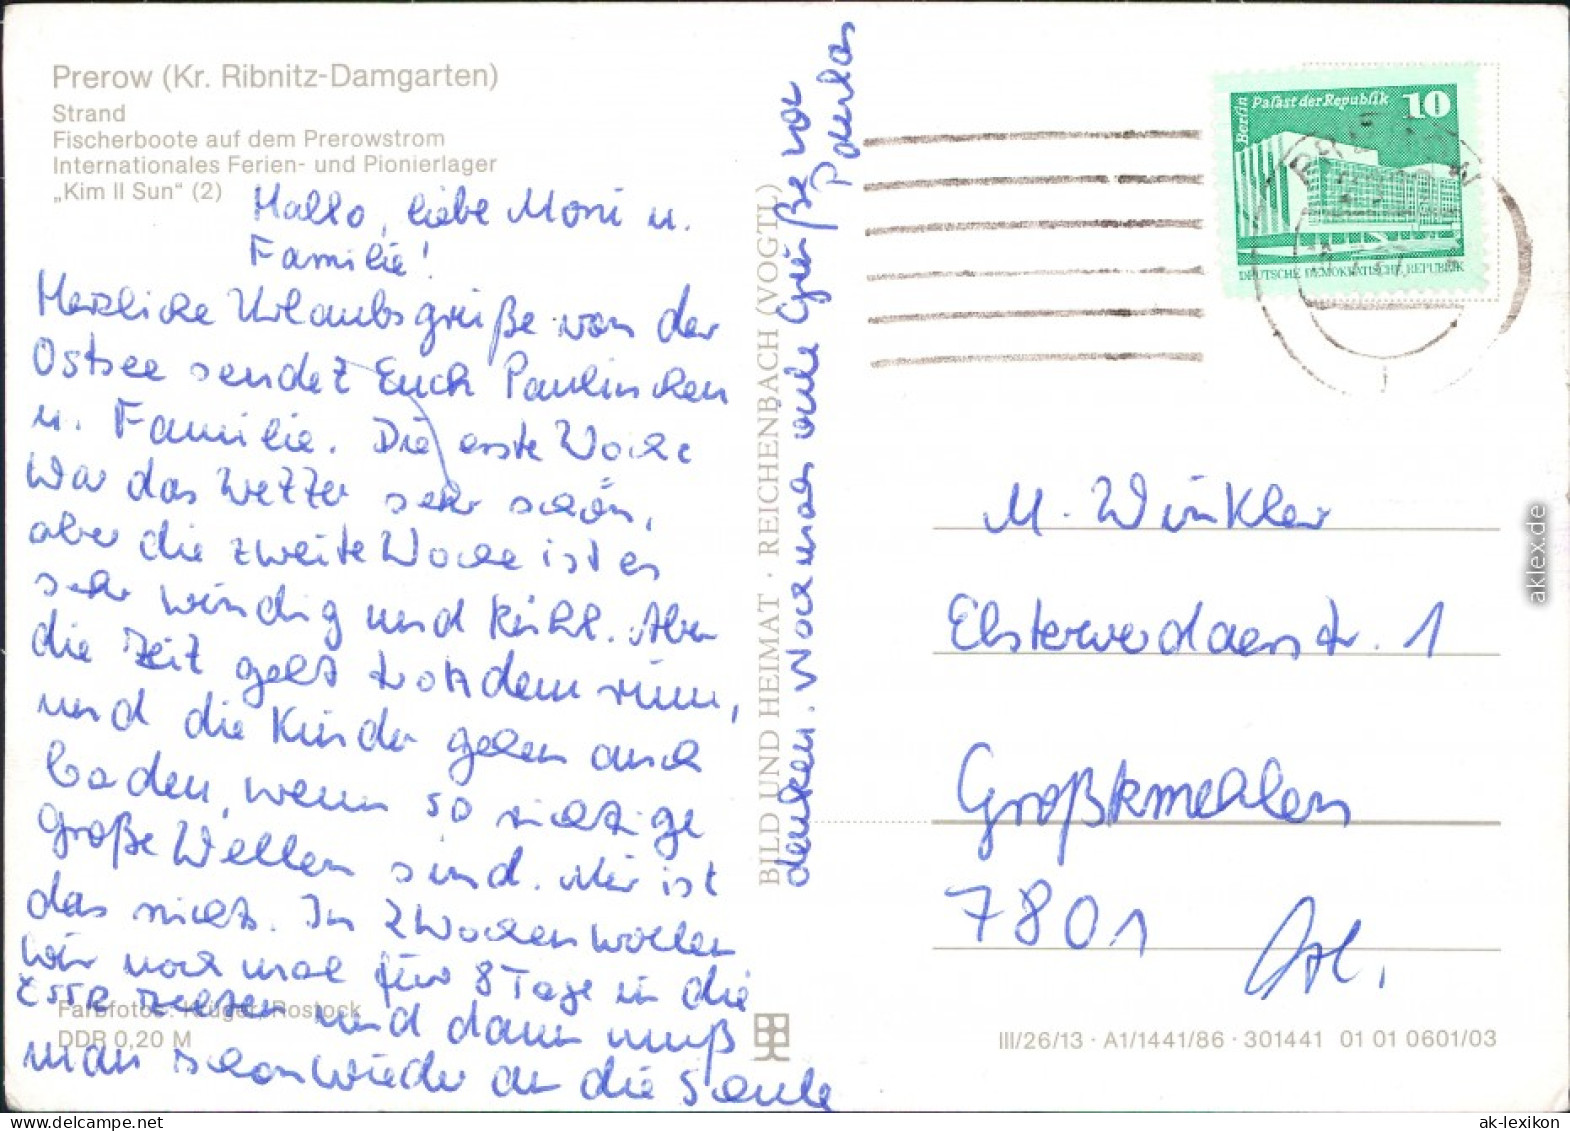 Prerow (Kr. Ribnitz-Damgarten)
Strand
Fischerboote auf dem Prerowstrom
Internationales Ferien- und Pionierlager
„Kim Il Sun“ (2)
Hallo, liebe Moni u.
Familie!
Herzliche Urlaubsgrüße von der
Ostsee sendet Euch Paulinchen
u. Familie. Die erste Woche
war das Wetter sehr schön,
aber die zweite Woche ist es
sehr windig und kühl. Aber
die Zeit geht trotzdem rum,
und die Kinder gehen auch
baden, wenn so richtige
große Wellen sind. Mir ist
das nichts. In 2 Wochen wollen
wir noch mal für 8 Tage in die
ČSSR zelten und dann muß
man schon wieder an die Schule
denken. Nochmals viele Grüße von
Paula
Farbfotos: Krüger, Rostock
DDR 0,20 M
BILD UND HEIMAT · REICHENBACH (VOGTL)
Berlin Palast der Republik 10
DEUTSCHE DEMOKRATISCHE REPUBLIK
PREROW
M. Winkler
Elsterwerdaerstr. 1
Großkmehlen
7801
III/26/13 · A1/1441/86 · 301441 01 01 0601/03
aklex.de
ak-lexikon